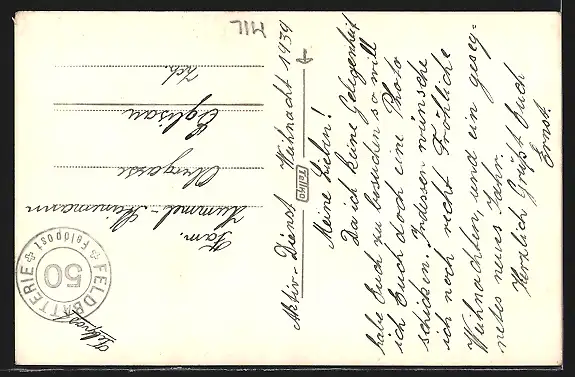 Aktiv-Dienst Weihnacht 1939
Meine Lieben!
Da ich keine Gelegenheit
habe Euch zu besuchen so will
ich Euch doch eine Photo
schicken. Indessen wünsche
ich noch recht Fröhliche
Weihnachten, und ein geseg-
netes neues Jahr.
Herzlich Grüsst Euch
Ernst.
Telko
MIL
Feldpost
FELDBATTERIE
50
Feldpost
Fam.
Obergasse
Eglisau
Zch.